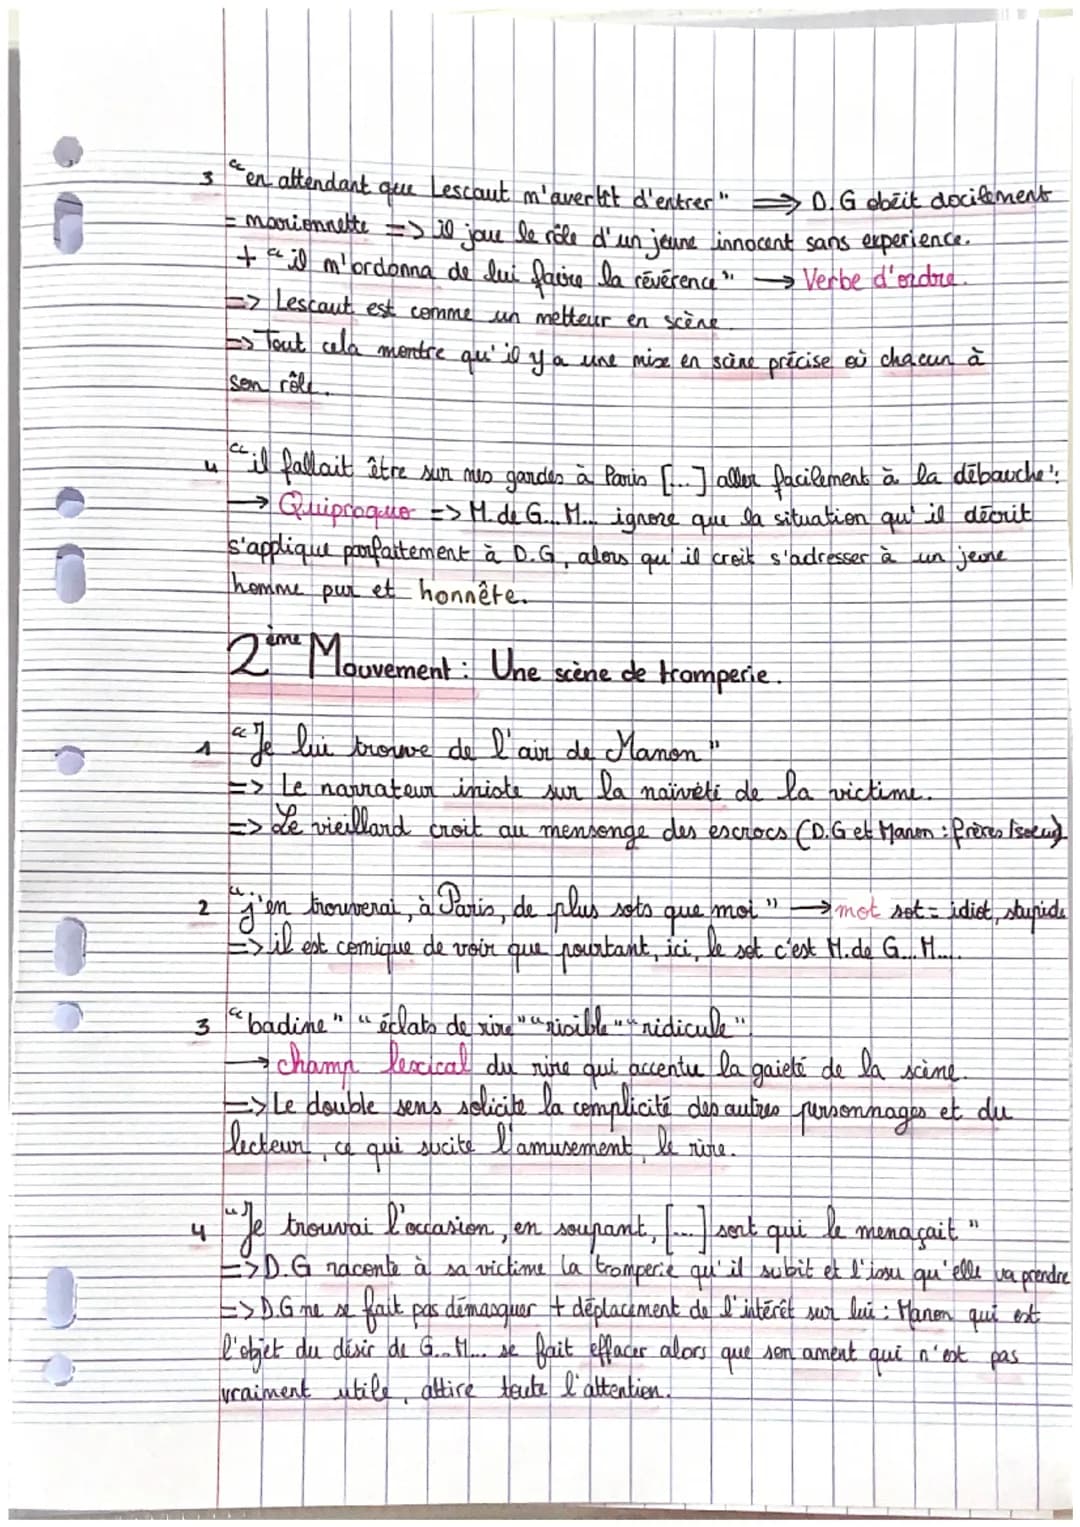 3 "en attendant que Lescaut m'avertit d'entrer" => D.G obéit docilement
= marionnette => il joue le rôle d'un jeune innocent sans experience.
+ "il m'ordonna de lui faire la révérence" → Verbe d'ordre.
=> Lescaut est comme un metteur en scène.
=> Tout cela montre qu'il y a une mise en scène précise où chacun à
son rôle.
4 "il fallait être sur mes gardes à Paris [...] aller facilement à la débauche":
→ Quiproquo => M. de G... M... ignore que la situation qu'il décrit
s'applique parfaitement à D.G, alors qu'il croit s'adresser à un jeune
homme pur et honnête.
2ème Mouvement : Une scène de tromperie.
1 "Je lui trouve de l'air de Manon"
=> Le narrateur insiste sur la naïveté de la victime.
=> Le vieillard croit au mensonge des escrocs (D.G et Manon : frères/soeur)
2 "j'en trouverai, à Paris, de plus sots que moi" → mot sot = idiot, stupide
=> il est comique de voir que pourtant, ici, le sot c'est M. de G... M....
3 "badine" "éclats de rire" "risible" "ridicule".
→ champ lexical du rire qui accentu la gaieté de la scène.
=> Le double sens solicite la complicité des autres personnages et du
lecteur, ce qui sucite l'amusement, le rire.
4 "Je trouvai l'occasion, en soupant, [...] sort qui le menaçait"
=> D.G raconte à sa victime la tromperie qu'il subit et l'issu qu'elle va prendre
=> D.G ne se fait pas démasquer + déplacement de l'intérêt sur lui : Manon qui est
l'objet du désir de G... M... se fait effacer alors que son ament qui n'est pas
vraiment utile, attire toute l'attention.